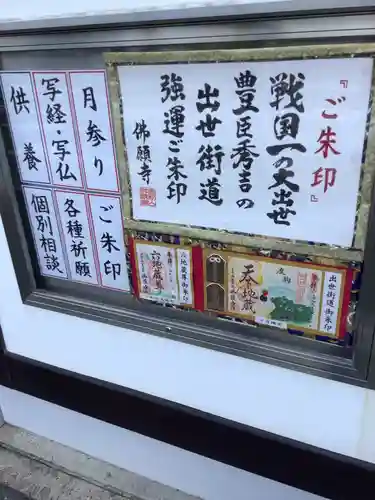 『ご朱印』
戦国一の大出世
豊臣秀吉の
出世街道
強運ご朱印
佛願寺
月参り
写経・写仏
供養
ご朱印
各種祈願
個別相談
六地蔵尊御朱印
六地蔵
天地蔵
出世街道御朱印